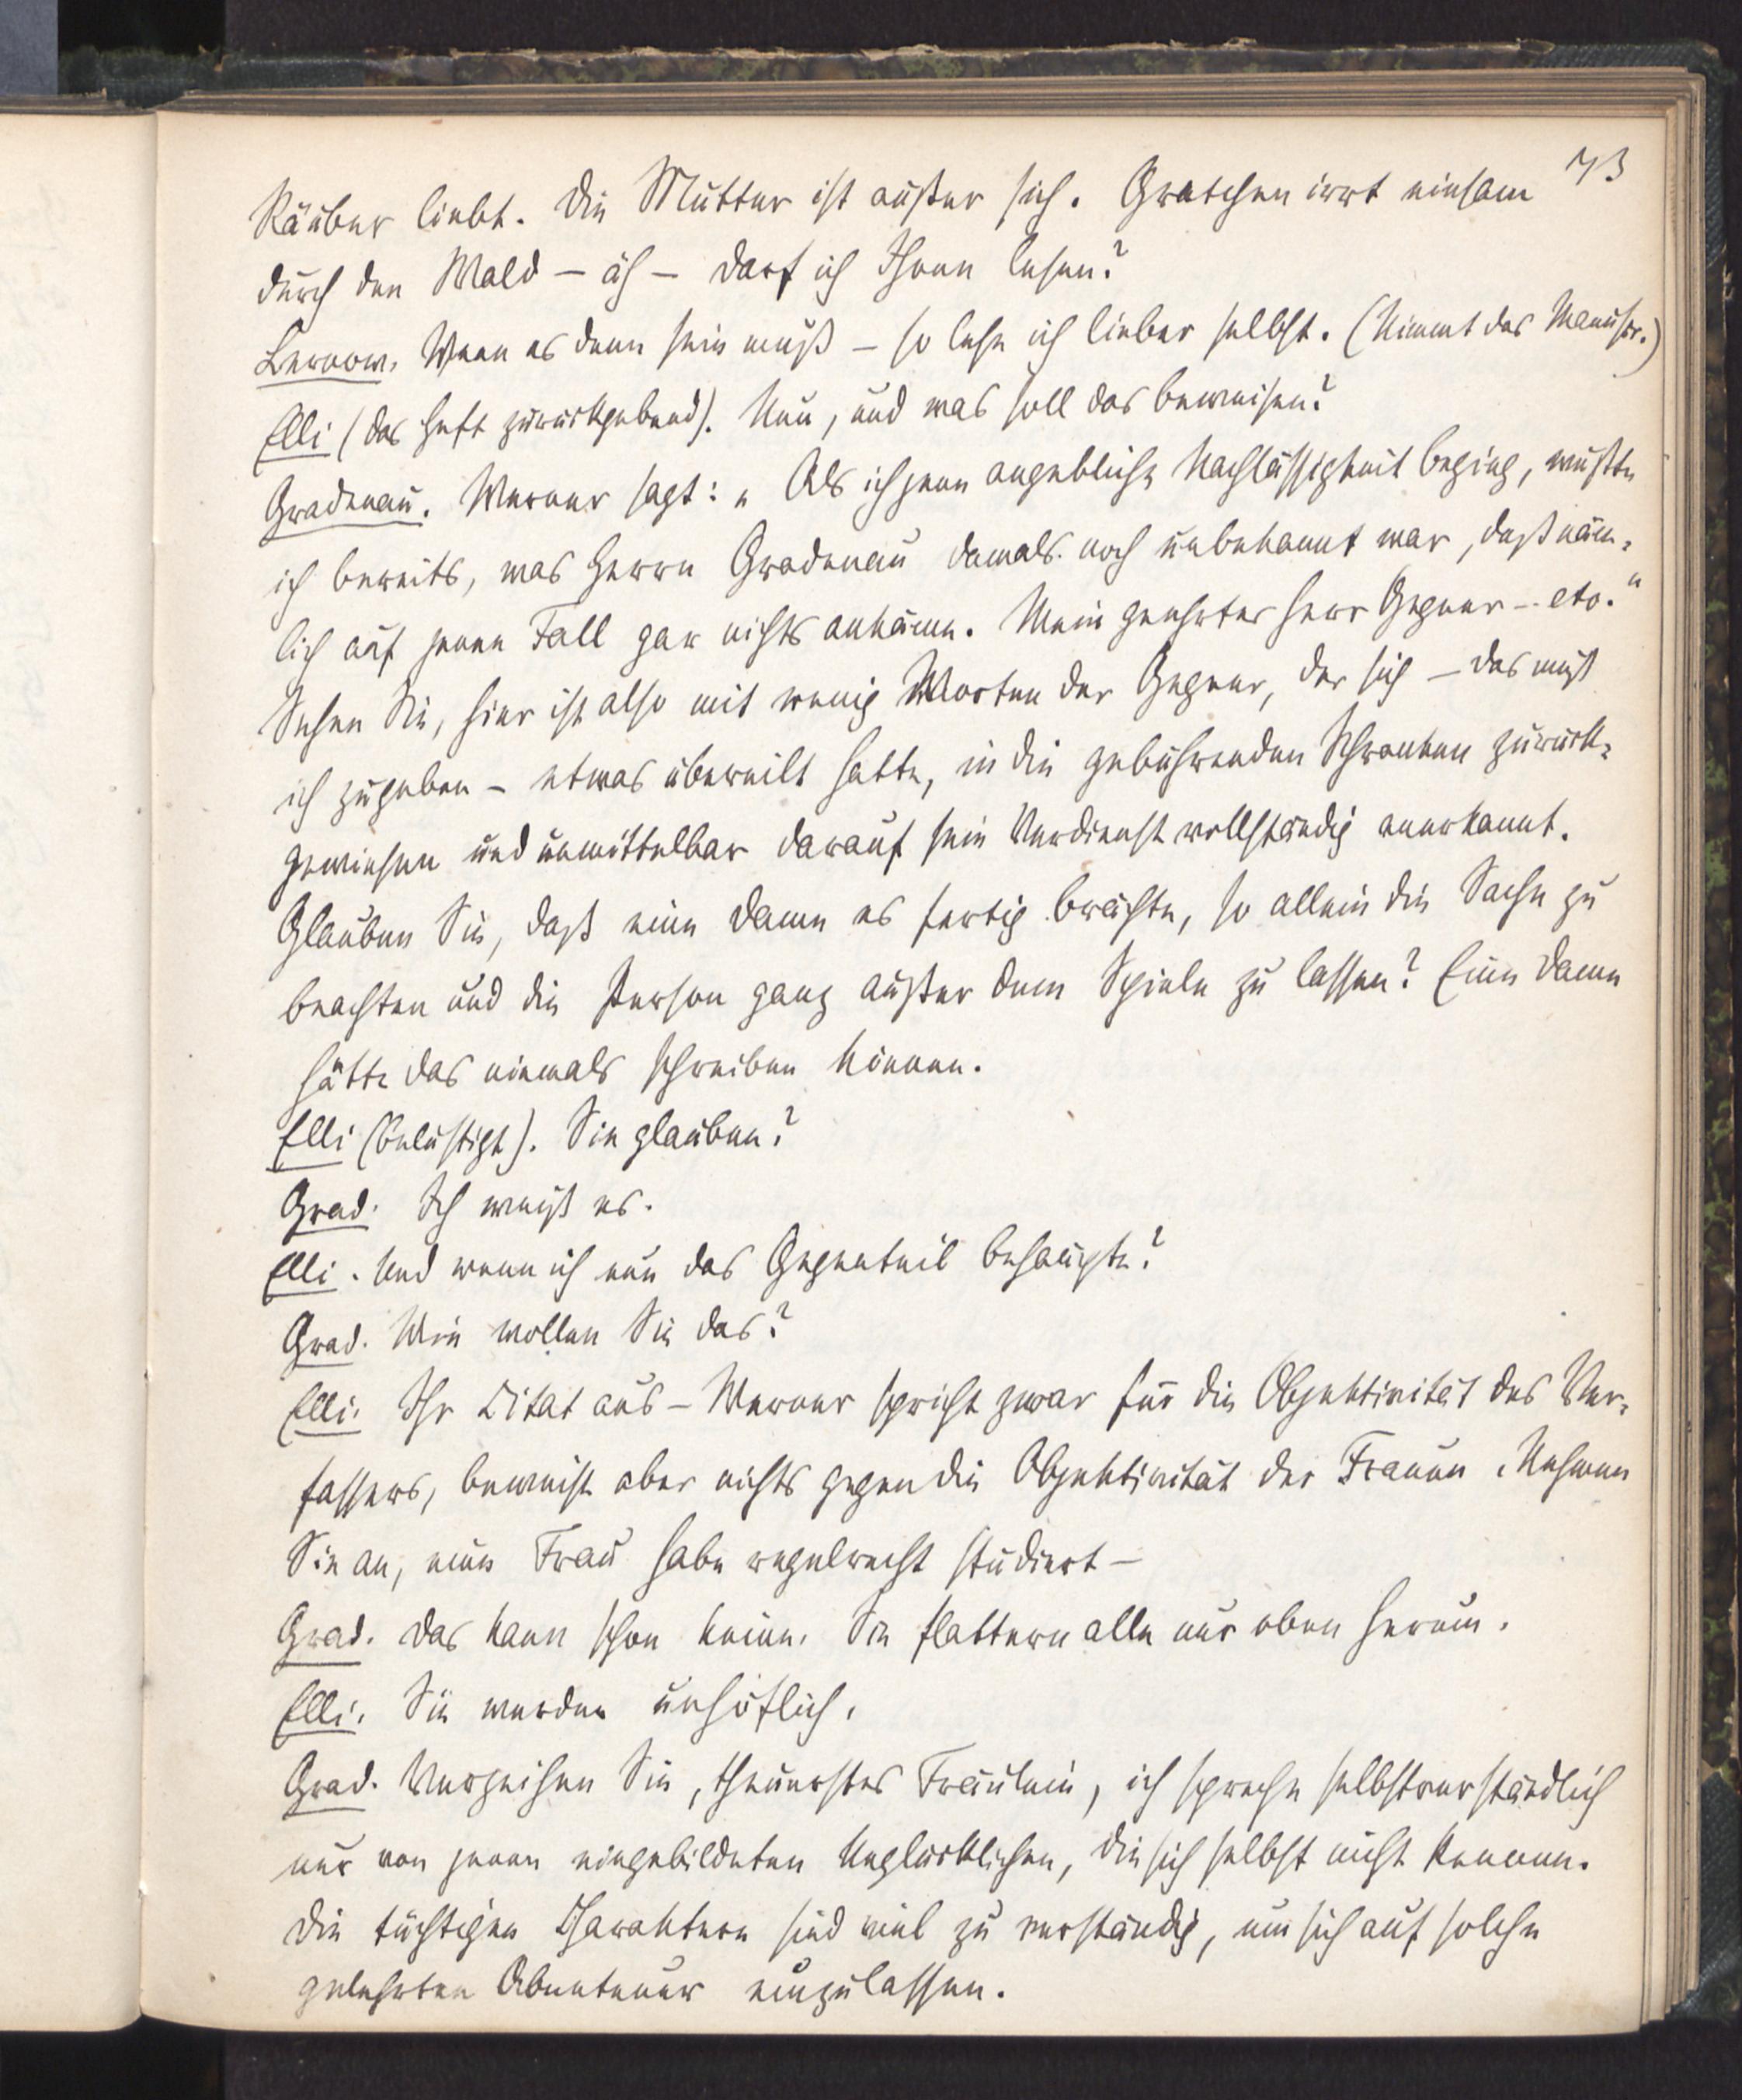 73
Räuber liebt. Die Mutter ist außer sich. Gretchen irrt einsam
durch den Wald – äh – darf ich Ihnen lesen?
Lernow. Wenn es denn sein muß – so lese ich lieber selbst. (Nimmt das Manuskr.)
Elli (das Heft zurückgebend). Nun, und was soll das beweisen?
Gradenau. Werner sagt: „Als ich jene angebliche Nachlässigkeit beging, wußte
ich bereits, was Herrn Gradenau damals noch unbekannt war, daß näm-
lich auf jenen Fall gar nichts ankäme. Mein geehrter Herr Gegner – etc.“
Sehen Sie, hier ist also mit wenig Worten der Gegner, der sich – das muß
ich zugeben – etwas übereilt hatte, in die gebührenden Schranken zurück-
gewiesen und unmittelbar darauf sein Verdienst vollständig anerkannt.
Glauben Sie, daß eine Dame es fertig brächte, so allein die Sache zu
beachten und die Person ganz außer dem Spiele zu lassen? Eine Dame
hätte das niemals schreiben können.
Elli (belustigt). Sie glauben?
Grad. Ich weiß es.
Elli. Und wenn ich nun das Gegenteil behaupte?
Grad. Wie wollen Sie das?
Elli. Ihr Zitat aus – Werner spricht zwar für die Objektivität des Ver-
fassers, beweist aber nichts gegen die Objektivität der Frauen. Nehmen
Sie an, eine Frau habe regelrecht studiert –
Grad. Das kann schon keine. Sie flattern alle nur oben herum.
Elli. Sie werden unhöflich.
Grad. Verzeihen Sie, theuerstes Fräulein, ich spreche selbstverständlich
nur von jenen eingebildeten Unglücklichen, die sich selbst nicht kennen.
Die tüchtigen Charaktere sind viel zu verständig, um sich auf solche
gelehrten Abenteuer einzulassen.